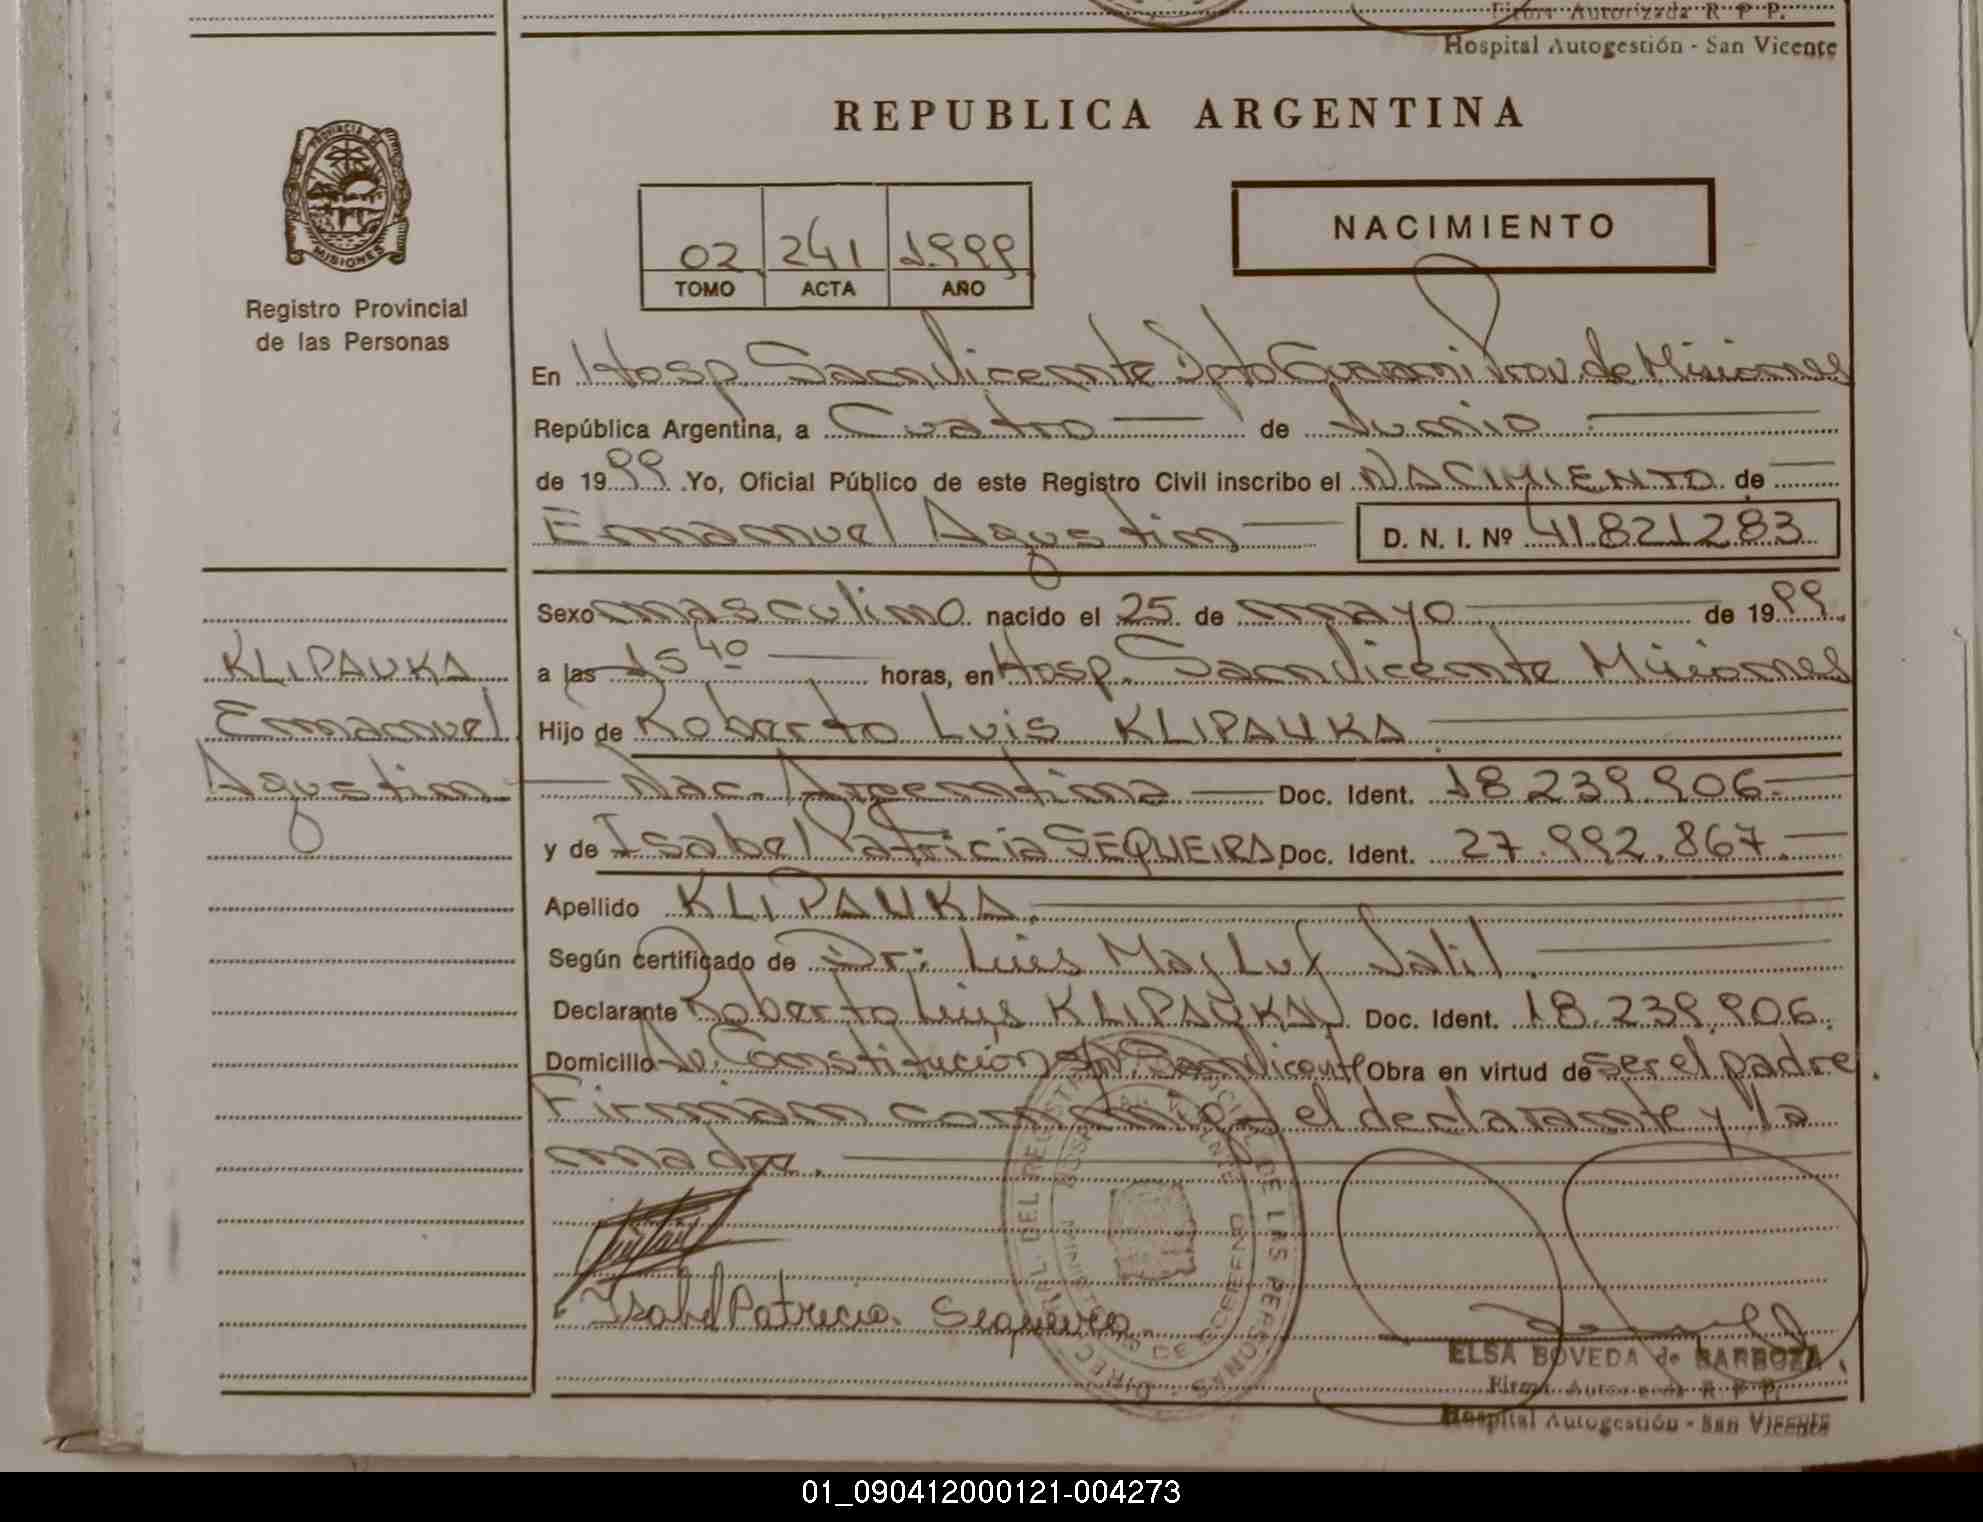 Firma Autorizada R P P.
Hospital Autogestión - San Vicente
REPUBLICA ARGENTINA
PROVINCIA DE
MISIONES
Registro Provincial
de las Personas
02 241 1.999
TOMO ACTA AÑO
NACIMIENTO
En Hosp. San Vicente Dpto Guarani Prov. de Misiones
República Argentina, a Cuatro de Junio
de 1999 Yo, Oficial Público de este Registro Civil inscribo el NACIMIENTO de
Emanuel Agustin D. N. I. Nº 41.821.283
Sexo masculino nacido el 25 de mayo de 1999
a las 15 40 horas, en Hosp. San Vicente Misiones
Hijo de Roberto Luis KLIPAUKA
Nac. Argentina Doc. Ident. 18.239.906
y de Isabel Patricia SEQUEIRA Doc. Ident. 27.992.867
Apellido KLIPAUKA
Según certificado de Dr: Luis Maj Luf Jalil
Declarante Roberto Luis KLIPAUKA Doc. Ident. 18.239.906
Domicilio Av. Constitucion San Vicente Obra en virtud de ser el padre.
Firman conmigo el declarante y la
madre.
KLIPAUKA
Emanuel
Agustin
Isabel Patricia Sequeira
DIRECCION DEL REGISTRO PROVINCIAL DE LAS PERSONAS
ELSA BOVEDA de BARBOZA
Firma Autorizada R P P.
Hospital Autogestión - San Vicente
01_090412000121-004273